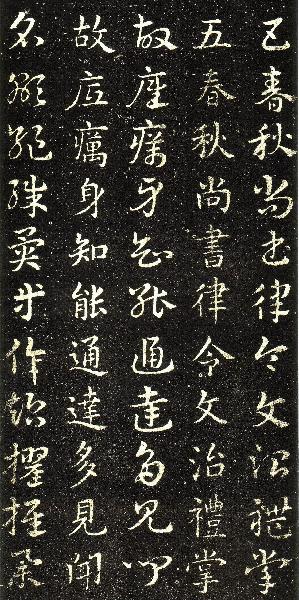 五春秋尚書律令文治禮掌
五春秋尚書律令文治禮掌
故底癘身知能通達多見聞
故底癘身知能通達多見聞
名顯絕殊異等倫超擢推